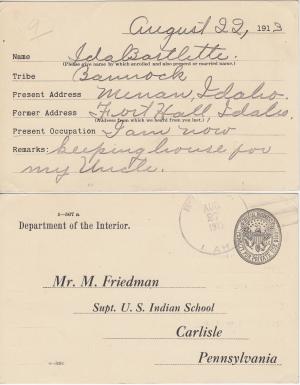 August 22, 1913
Name Ida Bartlette.
(Please give name by which enrolled and also present or married name.)
Tribe Bannock
Present Address Menan, Idaho.
Former Address Fort Hall, Idaho.
(Address from which we heard from you last.)
Present Occupation I am now
Remarks: keeping house for
my Uncle.
5—567 a
Department of the Interior.
AUG
27
1 AM
Mr. M. Friedman
Supt. U. S. Indian School
Carlisle
Pennsylvania